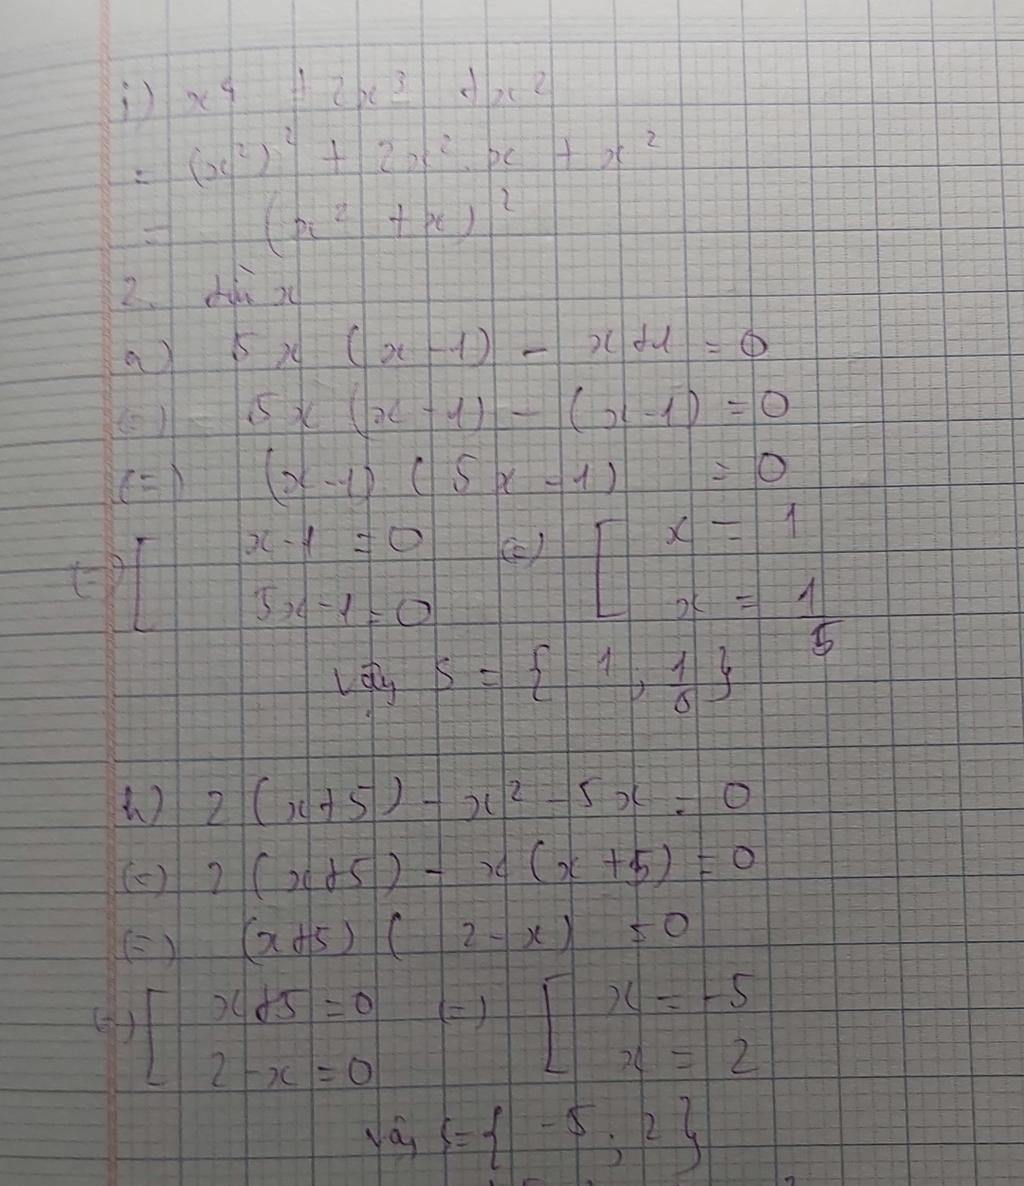 i) x⁴ + 2x³ + x²
= (x²)² + 2x².x + x²
= (x² + x)²
2. tìm x
a) 5x (x - 1) - x + 1 = 0
(=) 5x (x - 1) - (x - 1) = 0
(=) (x - 1) (5x - 1) = 0
(=) [ x - 1 = 0 (=) [ x = 1
5x - 1 = 0 x = 1/5
Vậy S = { 1 ; 1/5 }
b) 2 (x + 5) - x² - 5x = 0
(=) 2 (x + 5) - x (x + 5) = 0
(=) (x + 5) ( 2 - x) = 0
(=) [ x + 5 = 0 (=) [ x = -5
2 - x = 0 x = 2
Vậy S = { -5 ; 2 }